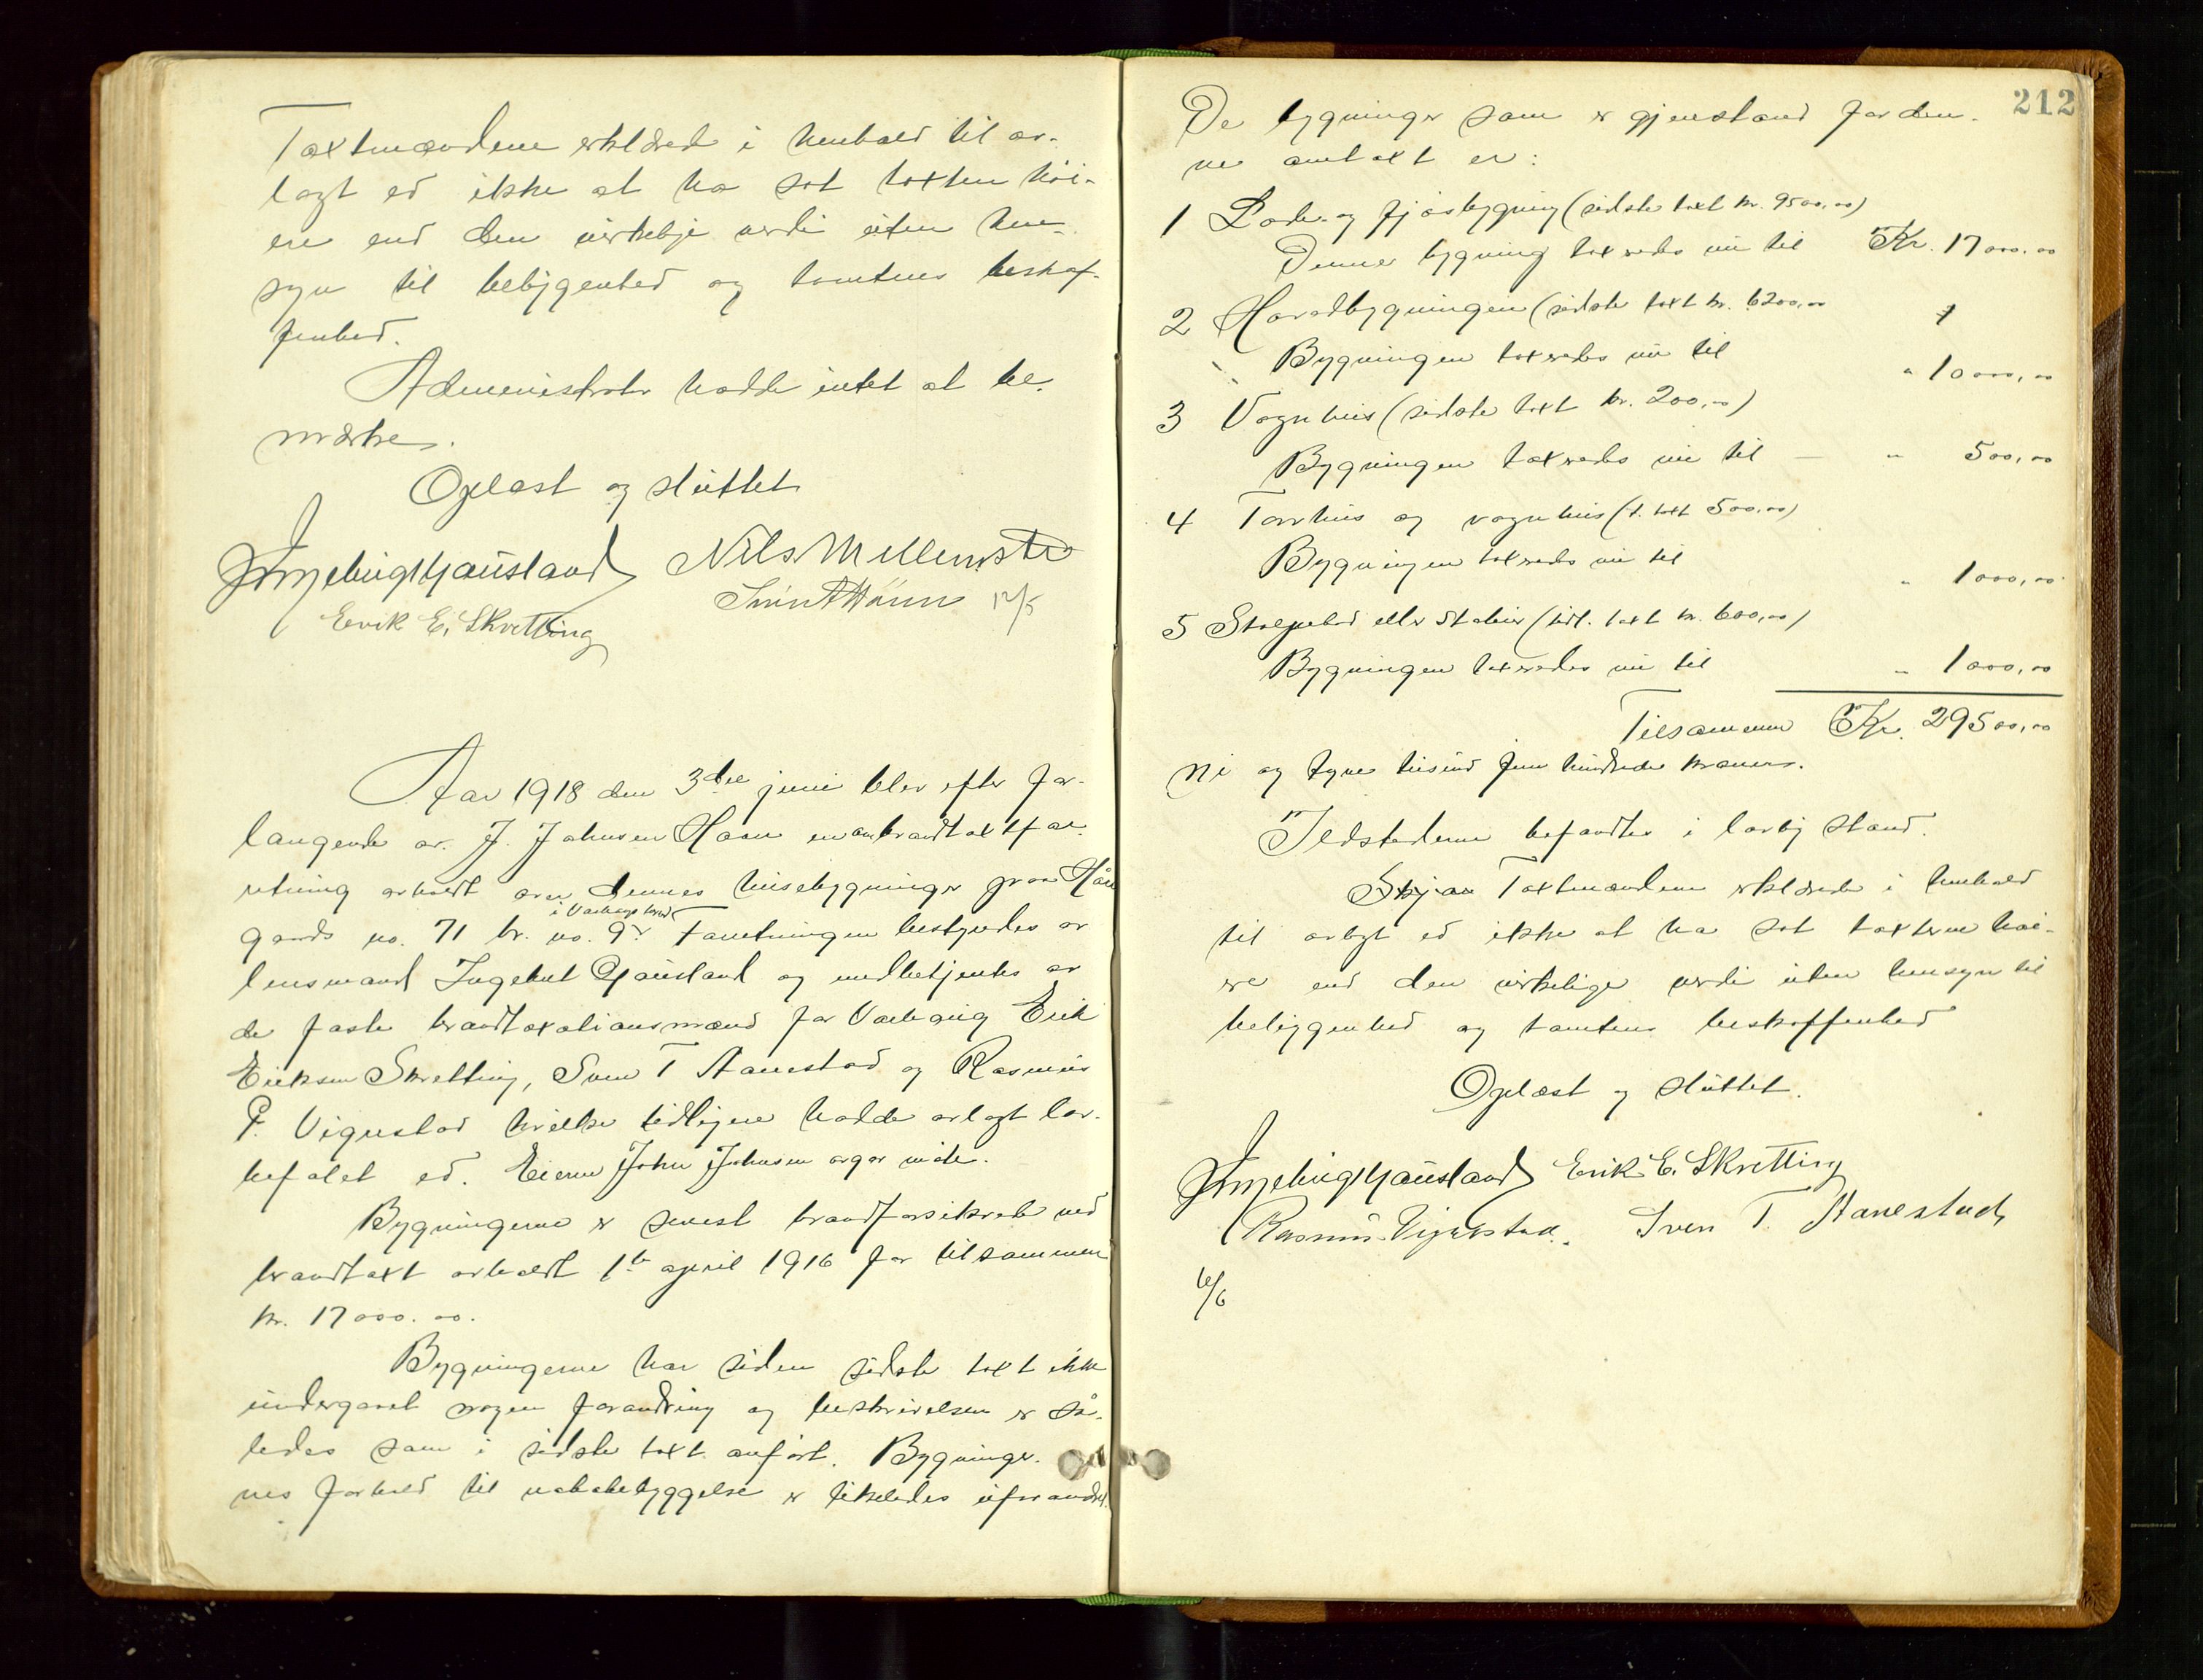 Taxtmændene erklærede i henhold til av-
lagt ed ikke at ha sat taxten høi-
ere end den virkelige verdi uten hen-
syn til beliggenhed og tomtens beskaf-
fenhed.
Administrator hadde intet at be-
mærke.
Oplæst og sluttet
Ingebregt Gausland Nils Mellemstr
12/5
Erik E. Skretting
Aar 1918 den 3die juni blev efter for-
langende av J. Johnsen Haar en ombrandtaxtfor-
retning avholdt over dennes husebygninger paa Håar
i Varhaug herred
gaards no. 71 br. no. 9. Forretningen bestyredes av
lensmand Ingebret Gausland og medbetjentes av
de faste brandtaxationsmænd for Varhaug Erik
Eriksen Skretting, Sven T Aanestad og Rasmus
P. Vigrestad hvilke tidligere hadde avlagt lov-
befalet ed. Eieren John Johnsen avgav møte.
Bygningerne er senest brandforsikrede ved
brandtaxt avholdt 1te april 1916 for tilsammen
kr. 17000.00.
Bygningerne har siden sidste taxt ikke
undergaaet nogen forandring og beskrivelsen er så-
ledes som i sidste taxt anført. Bygninger-
nes forhold til nabobebyggelse er likeledes uforandret.
212
De bygninger som er gjenstand for den-
ne omtaxt er:
1 Lade- og fjøsbygning (sidste taxt kr. 9500,00)
Denne bygning taxeredes nu til Kr. 17000.00
2 Hovedbygningen (sidste taxt kr. 6200,00
Bygningen taxeredes nu til " 10000,00
3 Vognhus (sidste taxt kr. 200,00)
Bygningen taxeredes nu til — " 500,00
4 Torvhus og vognhus (t. taxt 500,00)
Bygningen taxeredes nu til " 1000,00
5 Stolpebod eller stabur (tidl. taxt kr. 600,00)
Bygningen taxeredes nu til " 1000,00
Tilsammen Kr. 29500,00
Ni og tyve tusind fem hundrede kroner.
Ildstederne befandtes i lovlig stand.
Taxtmændene erklærede i henhold
til avlagt ed ikke at ha sat taxterne høi-
ere end den virkelige verdi uten hensyn til
beliggenhed og tomtens beskaffenhed
Oplæst og sluttet.
Ingebregt Gausland Erik E. Skretting
Rasmus Vigrestad. Sven T. Aanestad,
6/6